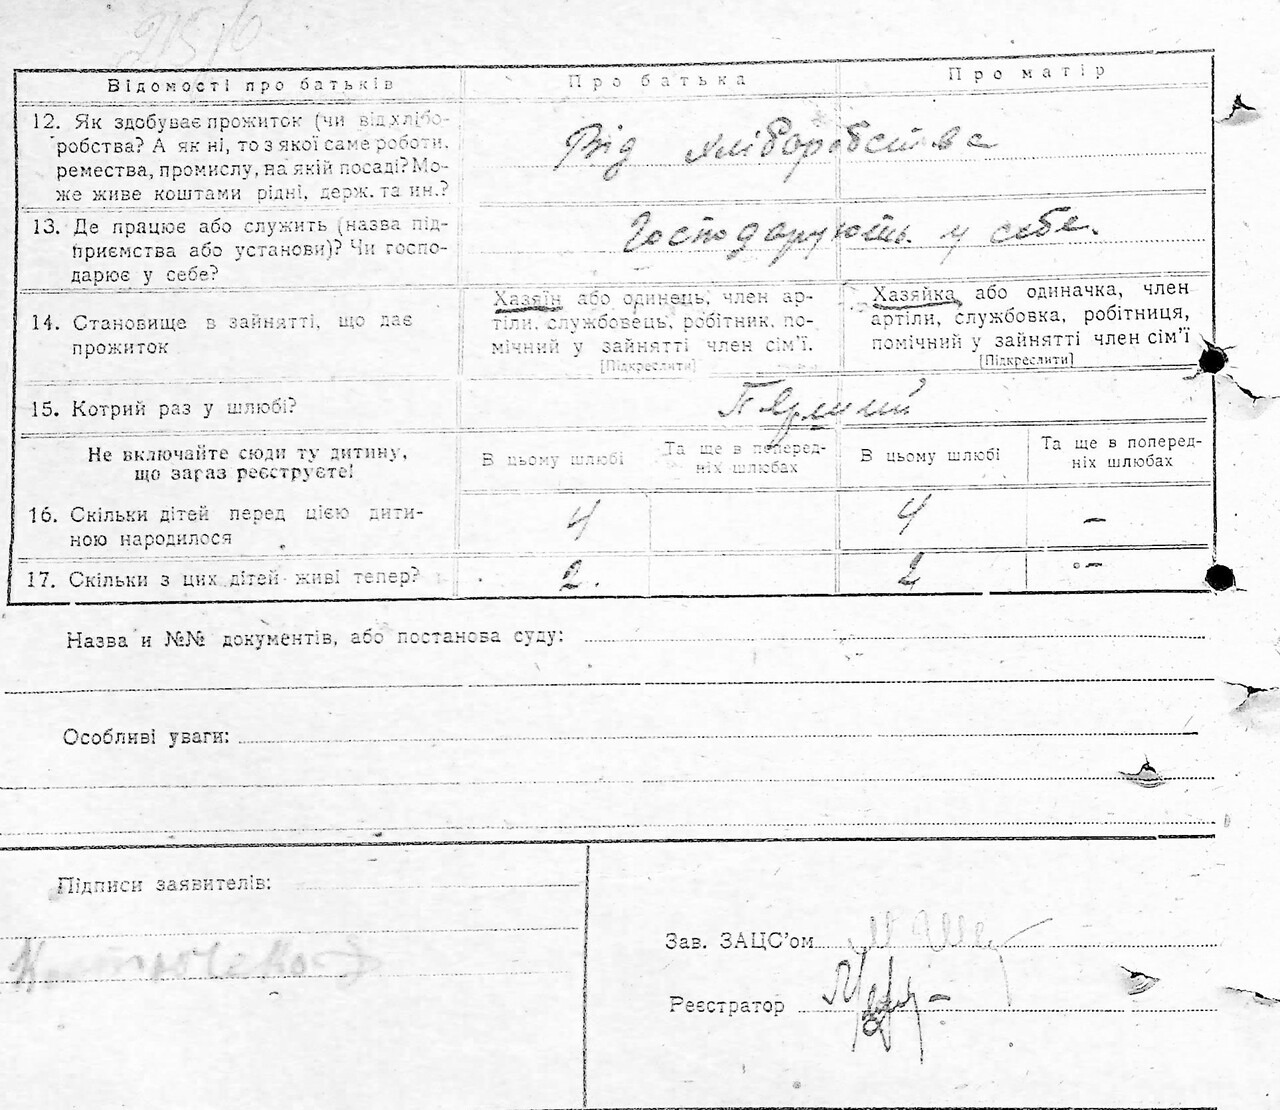 215/6
Відомості про батьків
Про батька
Про матір
12. Як здобуває прожиток (чи від хлібо-
робства? А як ні, то з якої саме роботи,
ремества, промислу, на якій посаді? Мо-
же живе коштами рідні, держ. та ин.?
Від хліборобства
13. Де працює або служить (назва під-
приємства або установи)? Чи госпо-
дарює у себе?
Господарують у себе.
14. Становище в зайнятті, що дає
прожиток
Хазяїн або одинець, член ар-
тіли, службовець, робітник, по-
мічний у зайнятті член сім'ї.
[Підкреслити]
Хазяйка або одиначка, член
артіли, службовка, робітниця,
помічний у зайнятті член сім'ї
[Підкреслити]
15. Котрий раз у шлюбі?
Не включайте сюди ту дитину,
що зараз реєструєте!
В цьому шлюбі
Та ще в поперед-
ніх шлюбах
В цьому шлюбі
Та ще в поперед-
ніх шлюбах
16. Скільки дітей перед цією дити-
ною народилося
4
4
–
17. Скільки з цих дітей живі тепер?
2.
2
–
Назва и №№ документів, або постанова суду:
Особливі уваги:
Підписи заявителів:
Зав. ЗАЦС'ом
Реєстратор